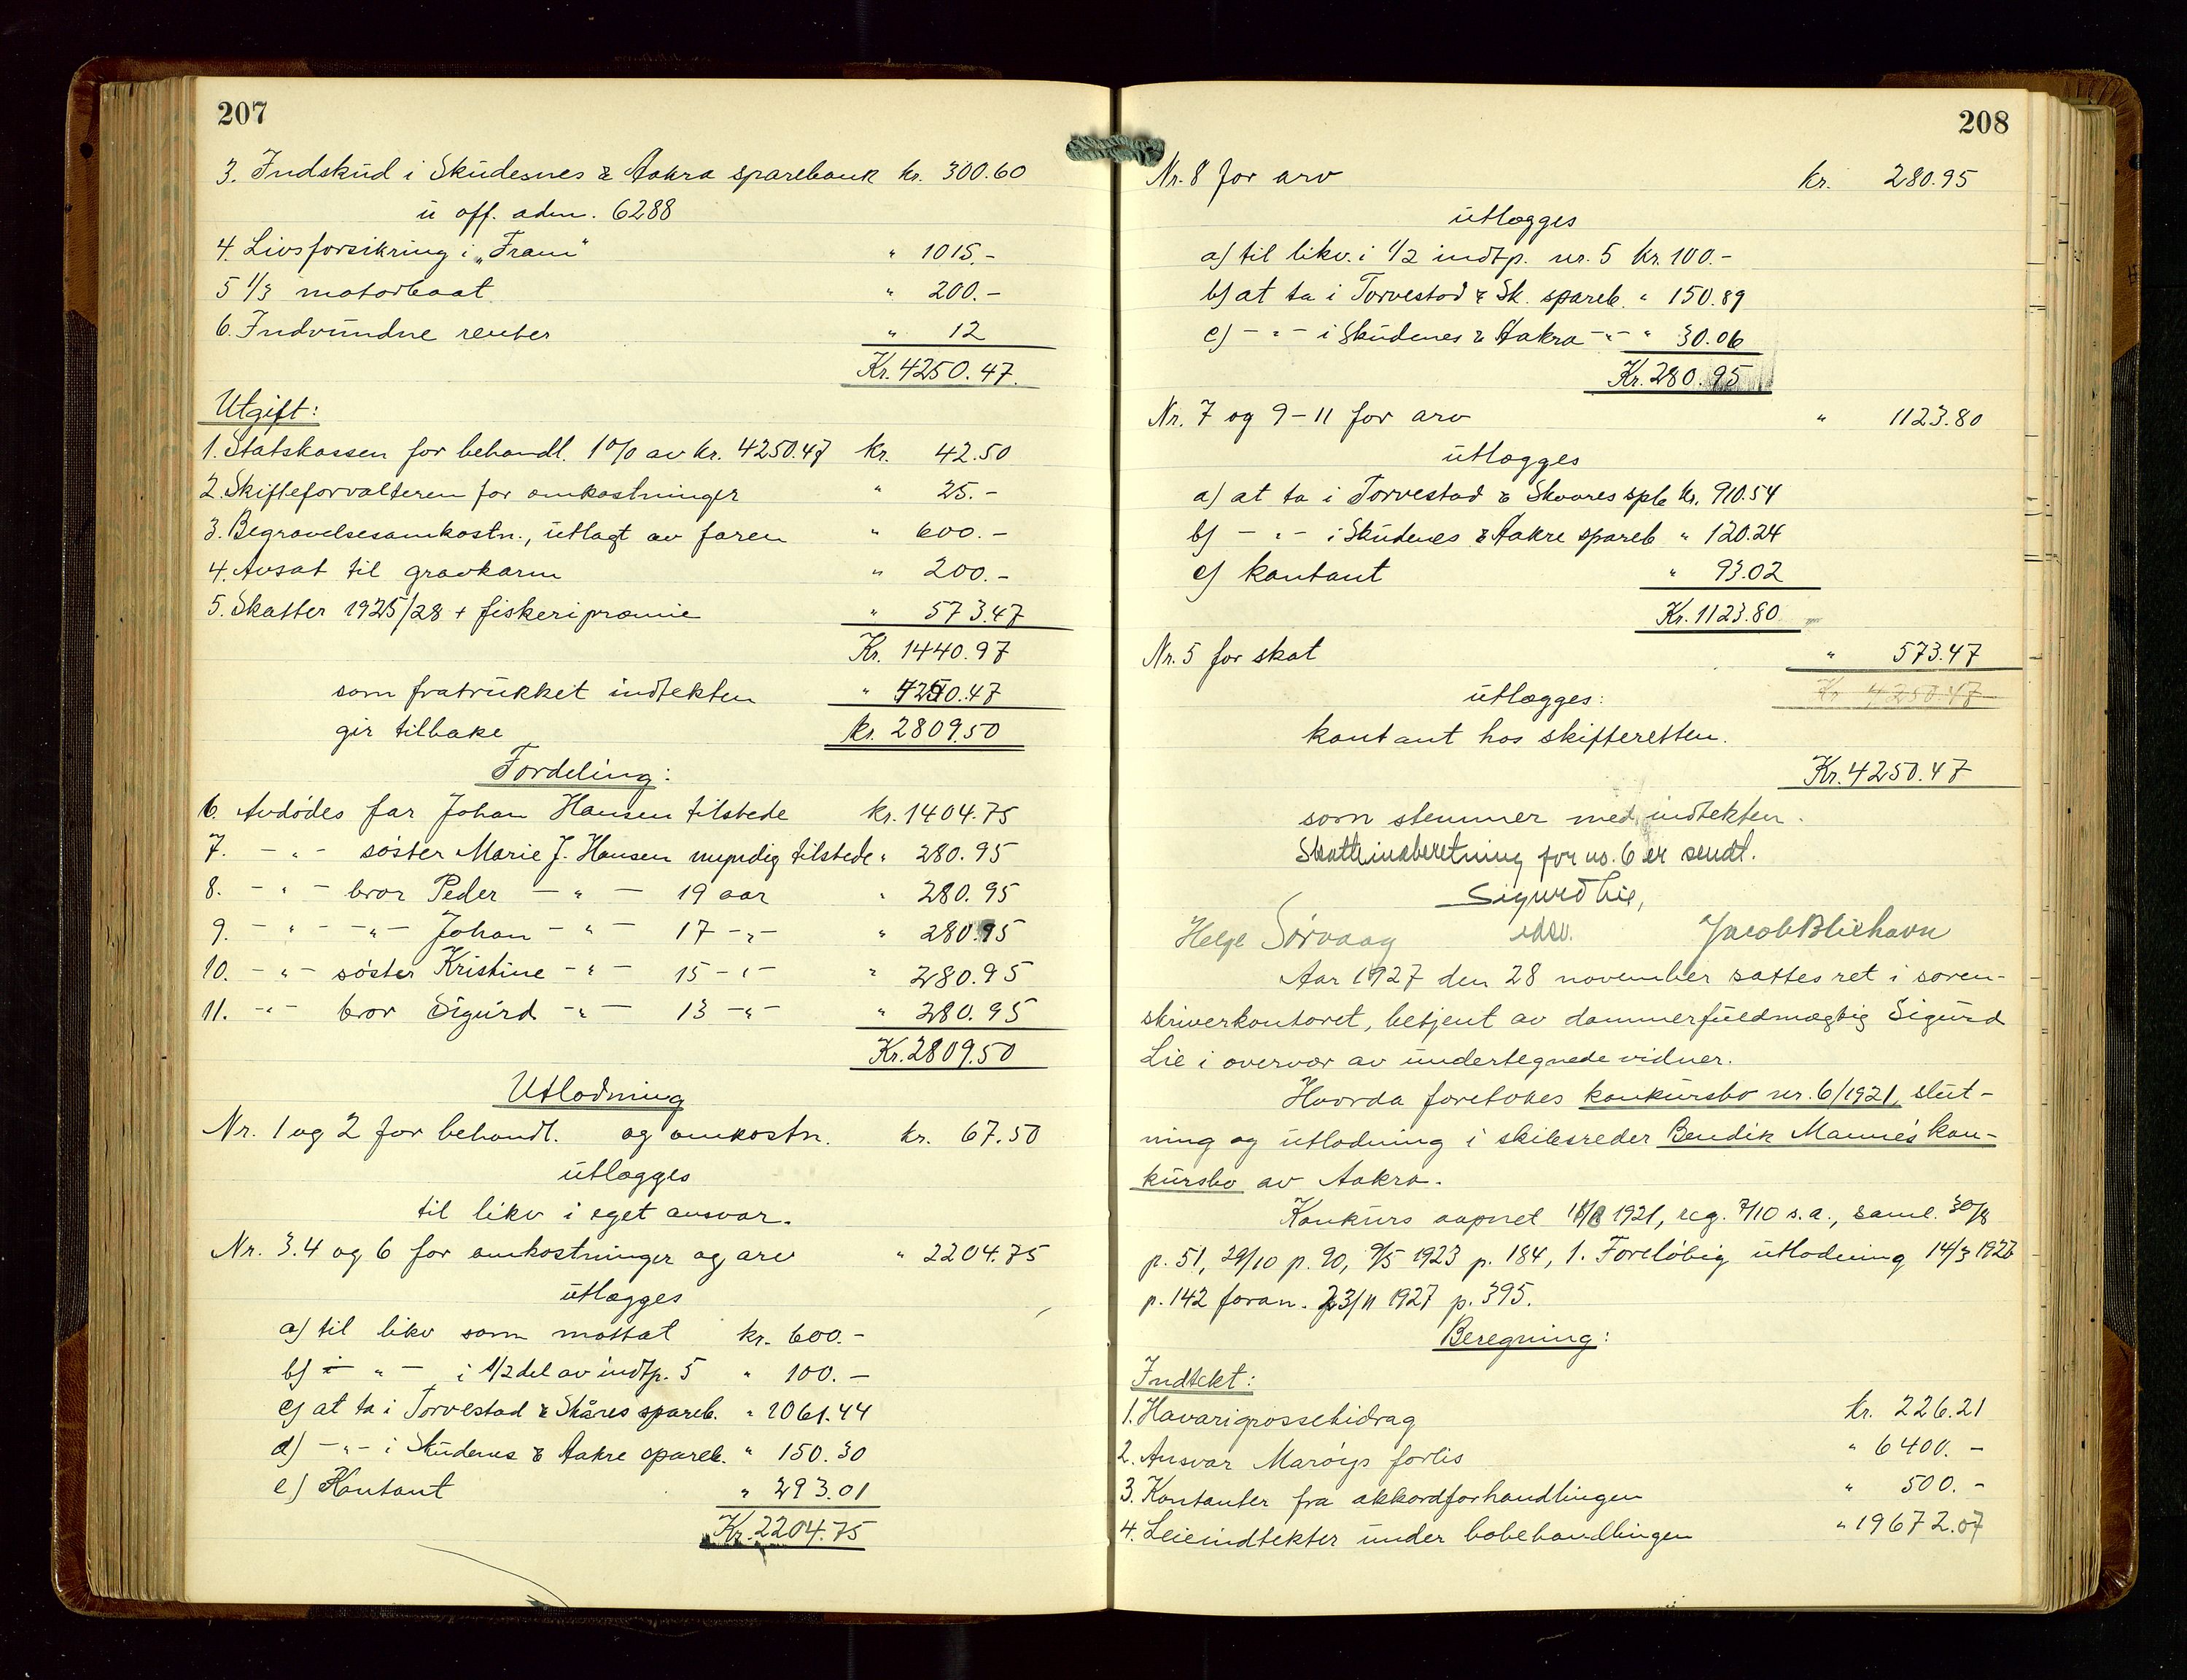 207
3. Indskud i Skudesnes & Aakra sparebank kr. 300.60
u off. adm. 6288
4. Livsforsikring i „Fram“ " 1015.-
5 1/3 motorbaat " 200.-
6. Indvundne renter " 12
Kr. 4250.47.
Utgift:
1. Statskassen for behandl. 1% av kr. 4250.47 kr. 42.50
2. Skifteforvalteren for omkostninger " 25.-
3. Begravelsesomkostn., utlagt av faren " 600.-
4. Avsat til gravkarm " 200.-
5. Skatter 1925/28 + fiskeripræmie " 573.47
Kr. 1440.97
som fratrukket indtekten " 4250.47
gir tilbake kr. 2809.50
Fordeling:
6. Avdødes far Johan Hansen tilstede kr. 1404.75
7. - " - søster Marie J. Hansen myndig tilstede " 280.95
8. - " - bror Peder - " - 19 aar " 280.95
9. - " - - " - Johan - " - 17 - " - " 280.95
10. - " - søster Kristine - " - 15 - " - " 280.95
11. - " - bror Sigurd - " - 13 - " - " 280.95
Kr. 2809.50
Utlodning
Nr. 1 og 2 for behandl. og omkostn. kr. 67.50
utlægges
til likv i eget ansvar.
Nr. 3.4 og 6 for omkostninger og arv " 2204.75
utlægges
a) til likv som mottat kr. 600.-
b) - " - i 1/2 del av indtp. 5 " 100.-
c) at ta i Torvestad & Skåres spareb. " 1061.44
d) - " - i Skudenes & Aakre spareb. " 150.30
e) Kontant " 293.01
Kr. 2204.75
208
Nr. 8 for arv kr. 280.95
utlægges
a) til likv. i 1/2 indtp. nr. 5 kr. 100.-
b) at ta i Torvestad & Sk. spareb. " 150.89
c) - " - i Skudenes & Aakra - " - " 30.06
Kr. 280.95
Nr. 7 og 9-11 for arv " 1123.80
utlægges
a) at ta i Torvestad & Skaares spb kr. 910.54
b) - " - i Skudenes & Aakre spareb " 120.24
c) kontant " 93.02
Kr. 1123.80
Nr. 5 for skat " 573.47
Kr. 4250.47
utlægges:
kontant hos skifteretten.
Kr. 4250.47
som stemmer med indtekten.
Skatteinnberetning for no. 6 er sendt.
Sigurd Lie,
edsv.
Helge Sørvaag Jacob Bliehavn
Aar 1927 den 28 november sattes ret i soren-
skriverkontoret, betjent av dommerfuldmægtig Sigurd
Lie i overvær av undertegnede vidner.
Hvorda foretokes konkursbo nr. 6/1921, slut-
ning og utlodning i skibsreder Bendik Mannes kon-
kursbo av Aakra.
Konkurs aapnet 1921, reg. 7/10 s.a., saml. 30/8
p. 51, 29/10 p. 90, 9/5 1923 p. 184, 1. Foreløbig utlodning 14/3 1926
p. 142 foran. 23/11 1927 p. 395.
Beregning:
Indtekt:
1. Havarigrossebidrag kr. 226.21
2. Ansvar Marøys forlis " 6400.-
3. Kontanter fra akkordforhandlingen " 500.-
4. Leieindtekter under bobehandlingen " 19672.07